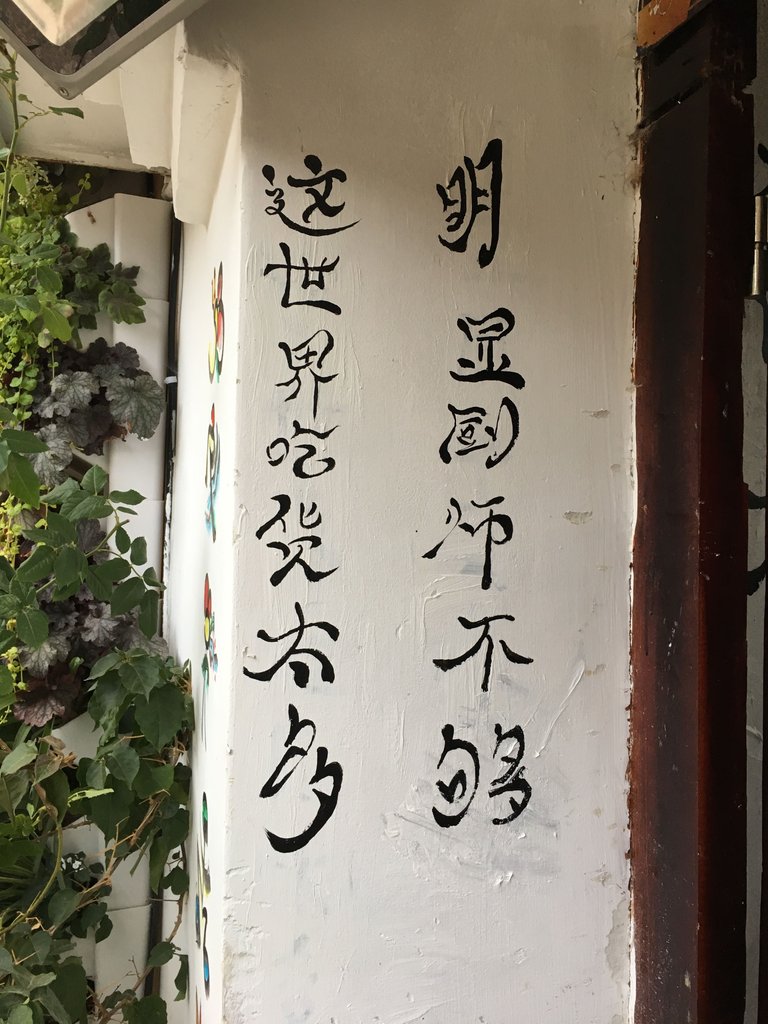 这世界吃货太多
明显厨师不够